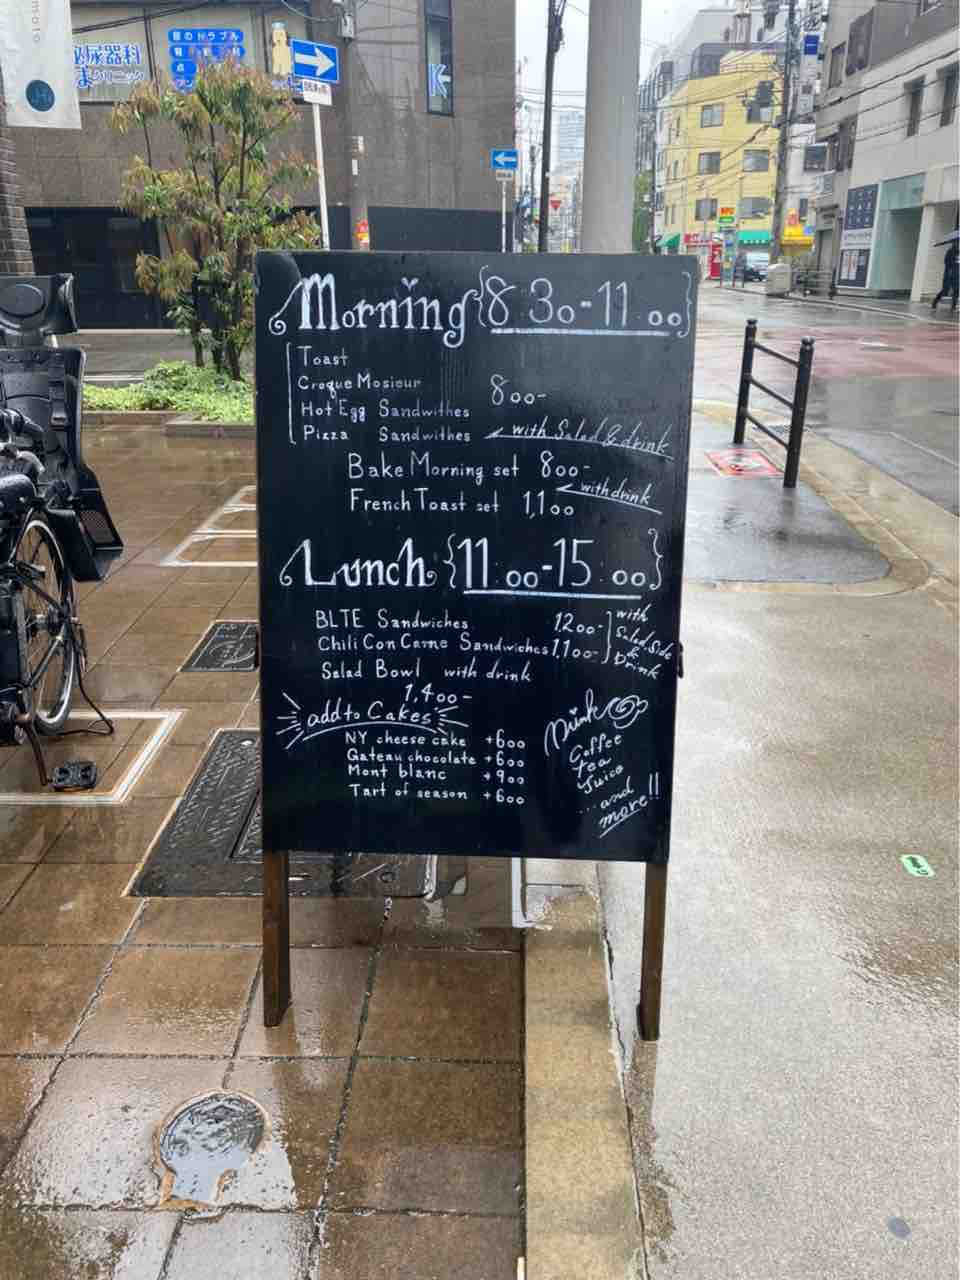 泌尿器科
クリニック
K
Morning {8:30-11:00}
Toast
Croque Mosieur
Hot Egg Sandwithes 800-
Pizza Sandwithes with Salad & drink
Bake Morning set 800-
French Toast set 1,100 with drink
Lunch {11:00-15:00}
BLTE Sandwiches 1200-
Chili Con Carne Sandwiches 1,100-
with Salad, Side & Drink
Salad Bowl with drink
1,400-
add to Cakes
NY cheese cake +600
Gateau chocolate +600
Mont blanc +900
Tart of season +600
Drink
Coffee
tea
Juice
...and
more!!